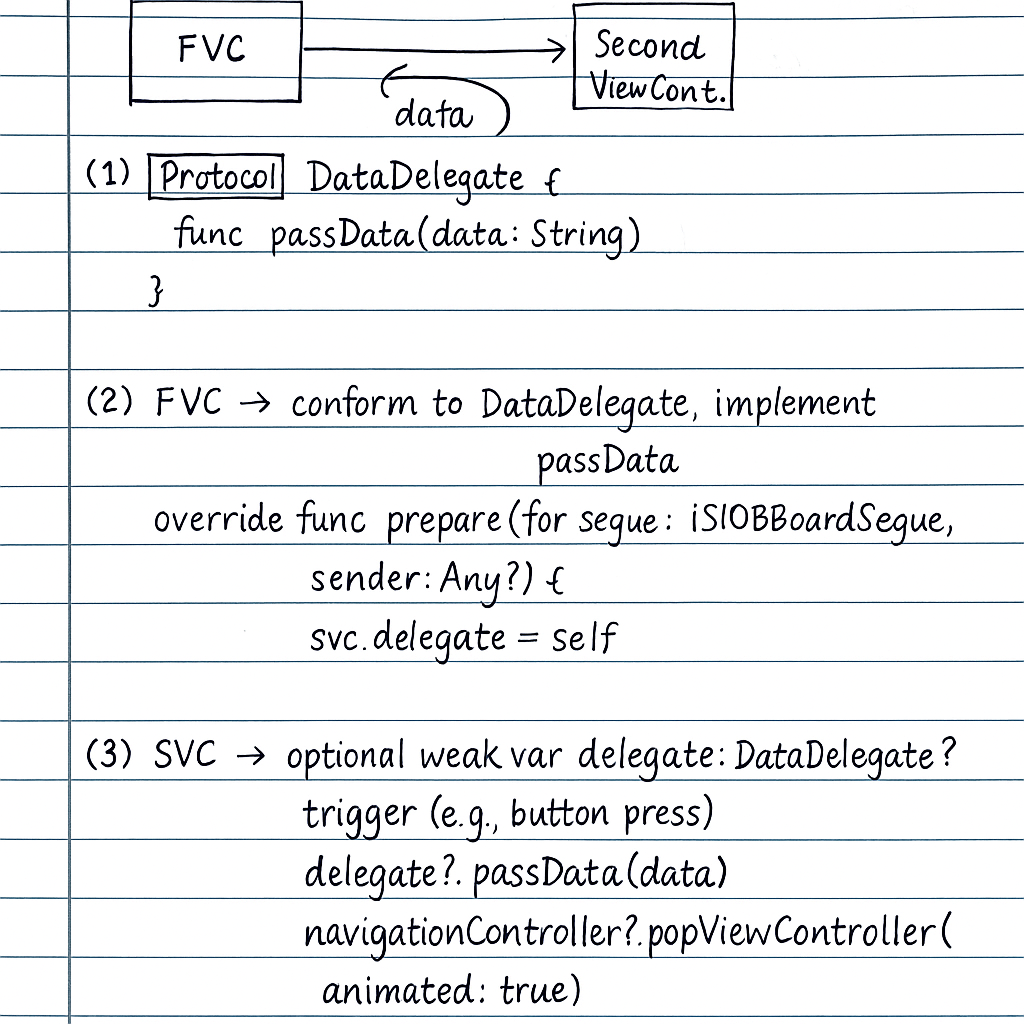 FVC
Second
ViewCont.
data
(1) Protocol DataDelegate {
func passData(data: String)
}
(2) FVC → conform to DataDelegate, implement
passData
override func prepare(for segue: iSIOBBoardSegue,
sender: Any?) {
svc.delegate = self
(3) SVC → optional weak var delegate: DataDelegate?
trigger (e.g., button press)
delegate?. passData(data)
navigationController?.popViewController(
animated: true)